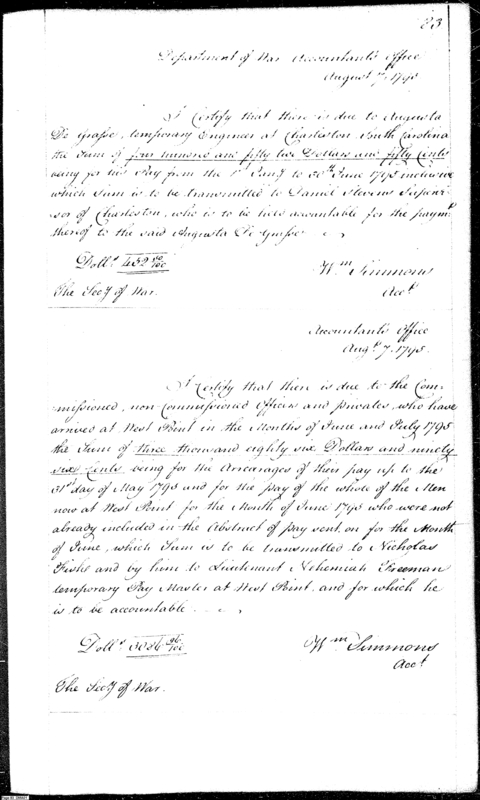 23
Department of War Accountant's Office
August 7. 1795
I Certify that there is due to Augusta
De Grasse, temporary Engineer at Charleston South Carolina
the Sum of four hundred and fifty two Dollars and fifty Cents
being for his Pay from the 1st Jany to 30th June 1795 inclusive
which Sum is to be transmitted to Daniel Stevens Supervi-
sor of Charleston, who is to be held accountable for the paymt
thereof to the said Augusta De Grasse
Dolls 452 50/100
Wm Simmons
Acct
The Secy of War.
Accountant's Office
Augt 7. 1795.
I Certify that there is due to the Com-
missioned, non-Commissioned Officers and privates, who have
arrived at West Point in the Months of June and July 1795
the Sum of three thousand eighty six Dollars and ninety
six Cents being for the Arrearages of their pay up to the
31st day of May 1795 and for the pay of the whole of the Men
now at West Point for the Month of June 1795 who were not
already included in the Abstract of pay sent on for the Month
of June, which Sum is to be transmitted to Nicholas
Fish and by him to Lieutenant Nehemiah Freeman
temporary Pay Master at West Point, and for which he
is to be accountable
Dolls 3086 96/100
Wm Simmons
Acct
The Secy of War.